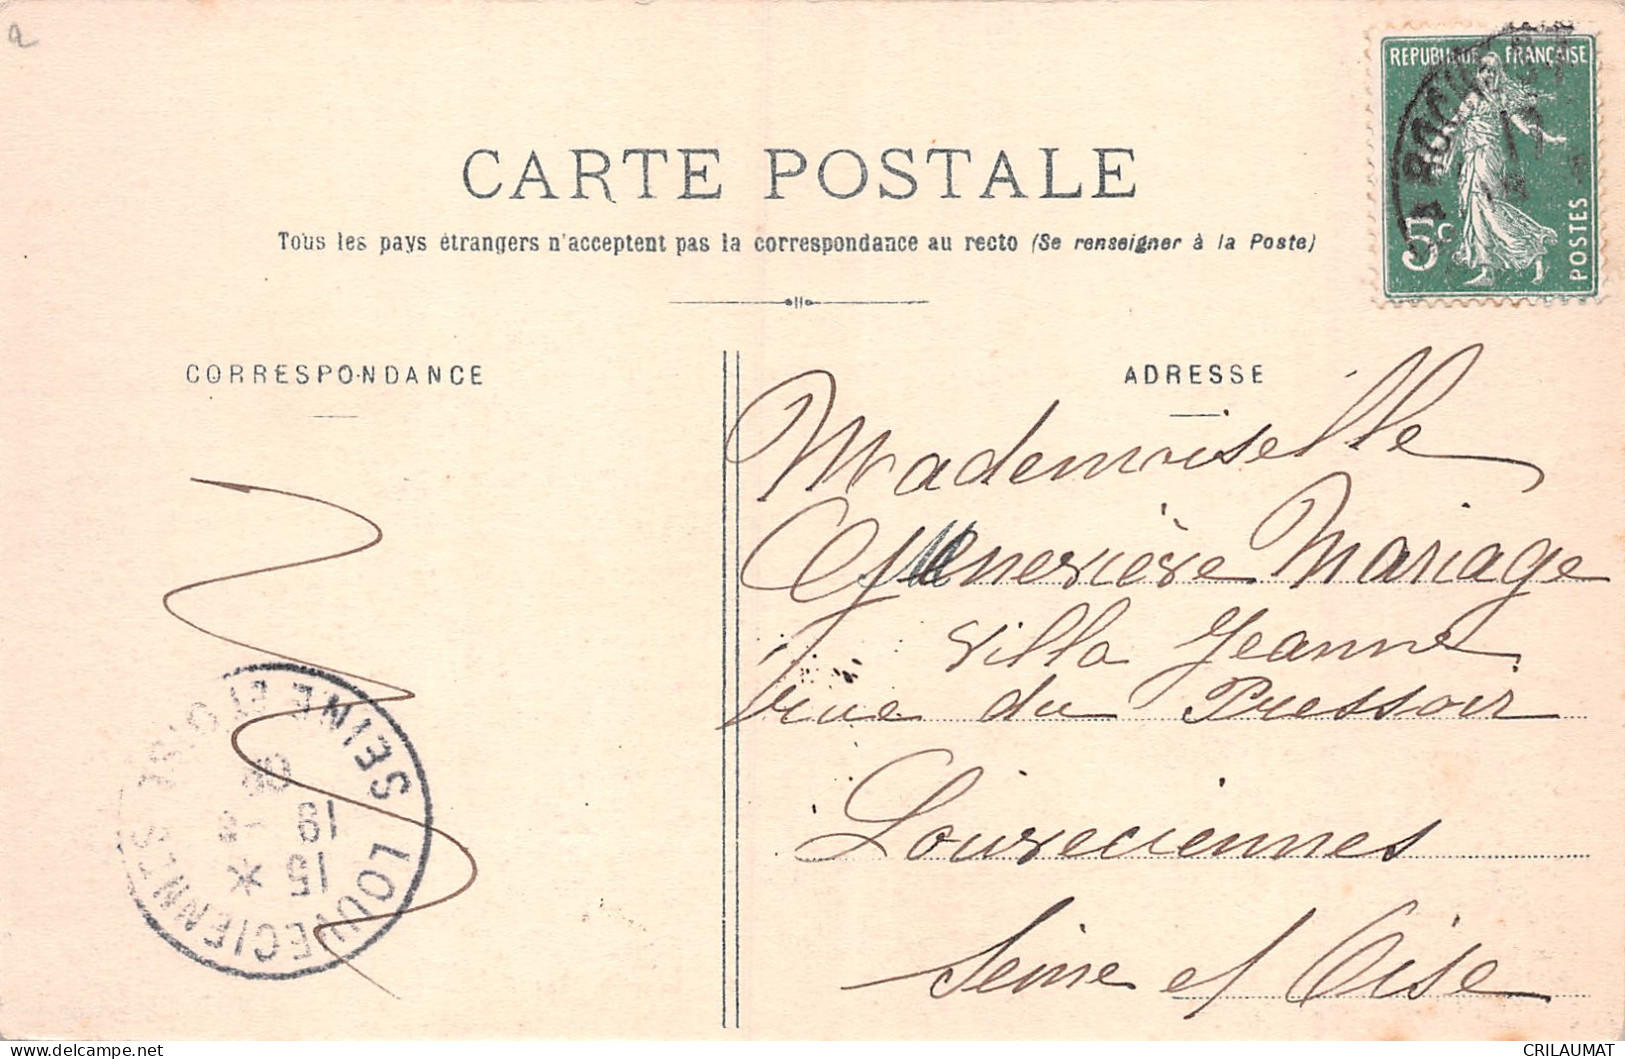 CARTE POSTALE
Tous les pays étrangers n'acceptent pas la correspondance au recto (Se renseigner à la Poste)
REPUBLIQUE FRANÇAISE
5c
POSTES
CORRESPONDANCE
ADRESSE
Mademoiselle
Geneviève Mariage
Villa Jeanne
rue du Pressoir
Louveciennes
Seine et Oise
LOUVECIENNES
SEINE ET OISE
15 *
19
08
CRILAUMAT